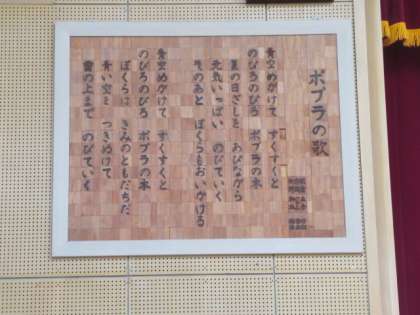 ポプラの歌
青空めがけて すくすくと
のびろのびろ ポプラの木
夏の日ざしを あびながら
元気いっぱい のびていく
そのあと ぼくらもおいかける
青空めがけて すくすくと
のびろのびろ ポプラの木
ぼくらは きみのともだちだ
青い空を つきぬけて
雲の上まで のびていく